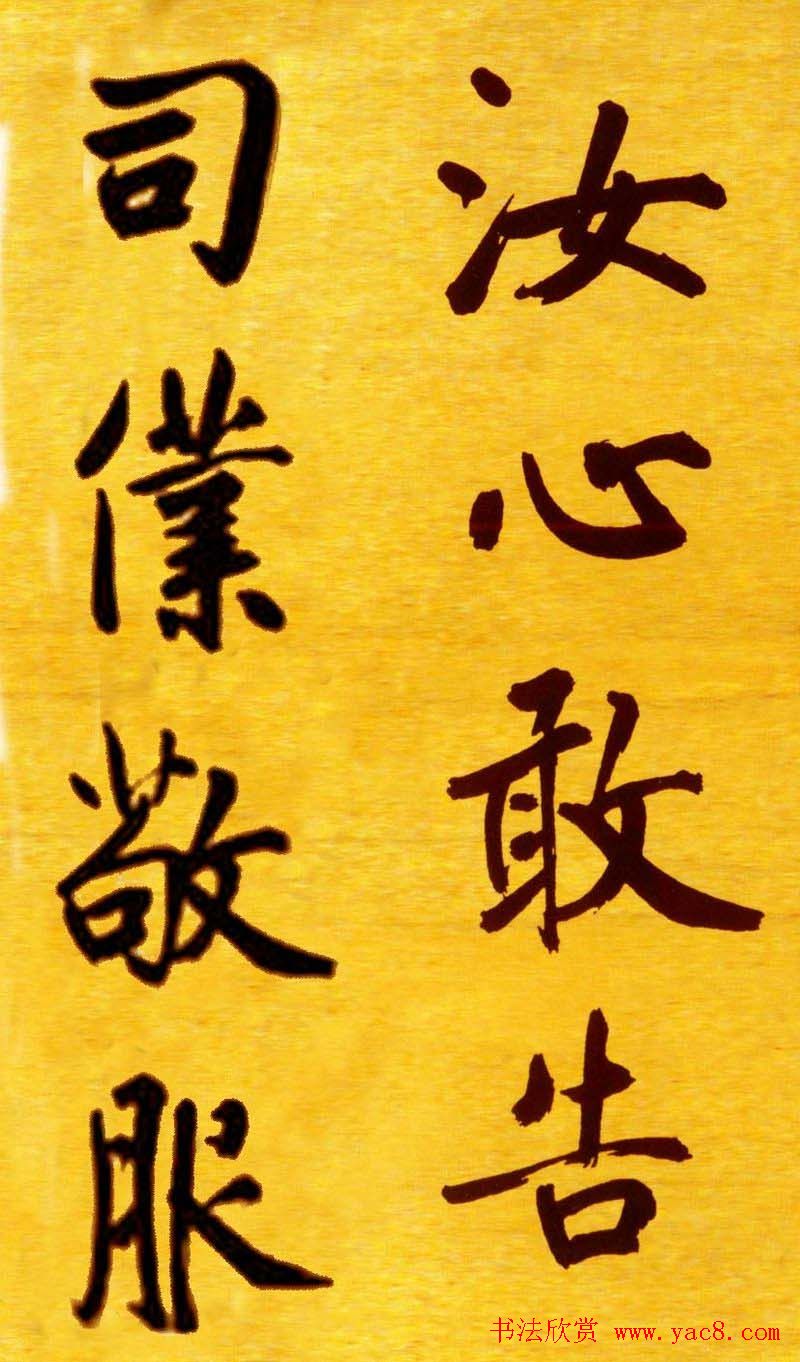 汝心敢告
司僕敬服
书法欣赏 www.yac8.com